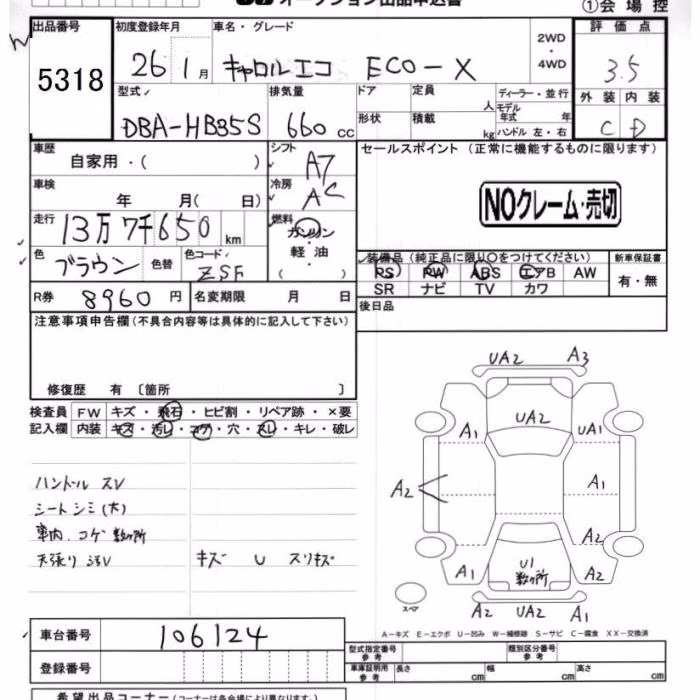 オークション出品申込書
①会場控
出品番号
5318
初度登録年月
26 1月
車名・グレード
キャロルエコ ECO-X
2WD
・
4WD
評価点
3.5
型式
DBA-HB35S
排気量
660 cc
ドア
定員
人
形状
積載
kg
ディーラー・並行
モデル年式 年
ハンドル 左・右
外装 内装
C D
車歴
自家用・( )
シフト
A7
セールスポイント (正常に機能するものに限ります)
NOクレーム・売切
車検
年 月( 日)
冷房
AC
走行
13万7千650 km
燃料
ガソリン
・
軽油
( )
色
ブラウン
色替
色コード
ZSF
装備品 (純正品に限り○をつけてください)
新車保証書
PS PW ABS エアB AW
SR ナビ TV カワ
有・無
R券
8960 円
名変期限 月 日
後日品
注意事項申告欄 (不具合内容等は具体的に記入して下さい)
修復歴 有 〔箇所 〕
検査員
記入欄
FW キズ・飛石・ヒビ割・リペア跡・×要
内装 キズ・汚レ・コゲ・穴・スレ・キレ・破レ
ハンドル スレ
シートシミ(大)
車内 コゲ 数ヶ所
天張り 汚レ キズ U スリキズ
UA2 A3
UA2
A1 UA1
A2 A1
A2
A1 U1 数ヶ所 A2
スペア
A2 UA2 A1
A-キズ E-エクボ U-凹み W-補修跡 S-サビ C-腐食 XX-交換済
車台番号
106124
登録番号
型式指定番号
参考
類別区分番号
参考
車庫証明用
参考
長さ cm 幅 cm 高さ cm
希望出品コーナー (コーナーは各会場により異なります。)